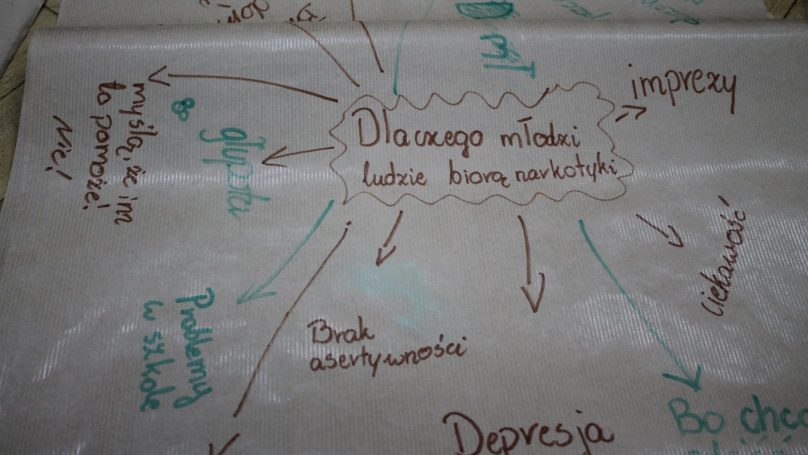 mT
imprezy
Dlaczego młodzi
ludzie biorą narkotyki
myślą, że im
to pomoże!
Nic!
Bo
głupota
ciekawość
Problemy
w szkole
Brak
asertywności
Depresja
Bo chcą